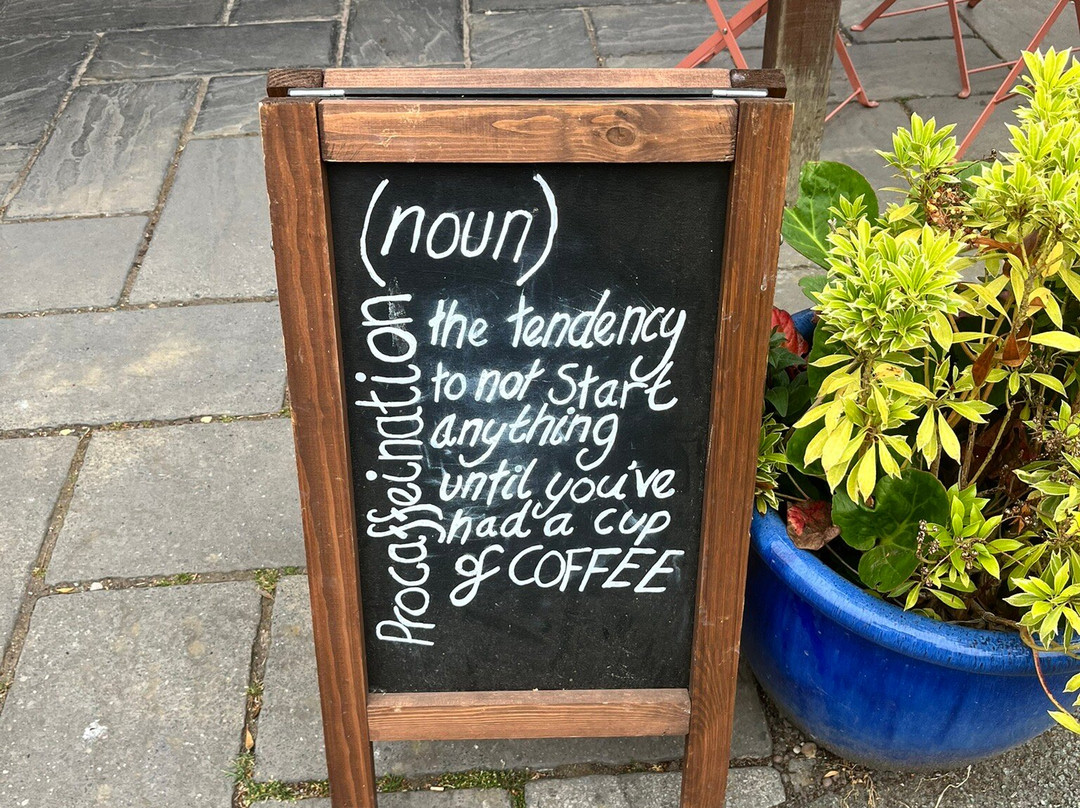 (noun)
Procaffeination
the tendency
to not Start
anything
until you've
had a cup
of COFFEE